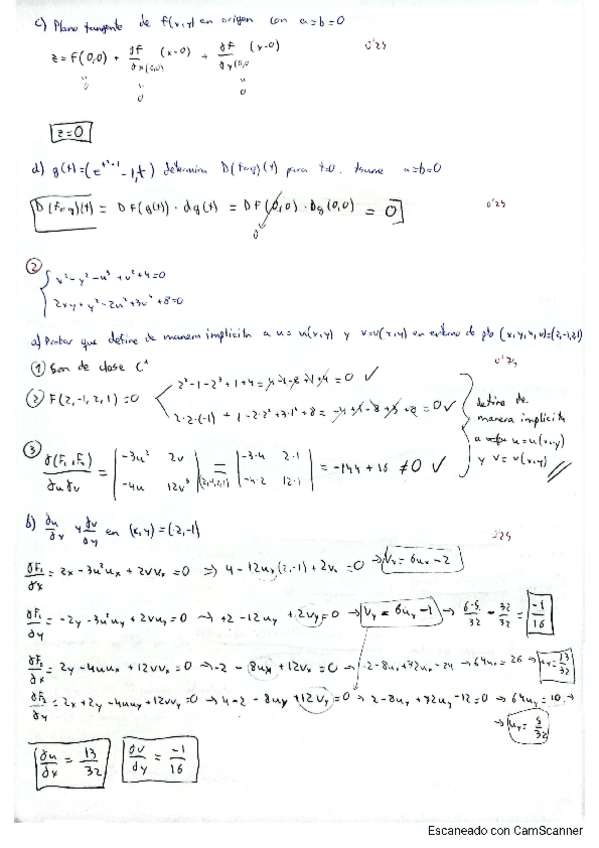 c) Plano tangente de f(x,y) en origen con a=b=0
z = f(0,0) + ∂f/∂x(0,0) (x-0) + ∂f/∂y(0,0) (y-0)
0'25
" " "
0 0 0
z=0
d) g(t)=(e^{t²+1}-1,t) determina D(f∘g)(t) para t=0. Asume a=b=0
D(f∘g)(t) = Df(g(t))·dg(t) = Df(0,0)·Dg(0,0) = 0
0'25
0
②
{ x²-y²-u³+v²+4=0
2xy+y²-2u²+3v⁴+8=0
a) Probar que define de manera implícita a u=u(x,y) y v=v(x,y) en entorno de pto (x,y,u,v)=(2,-1,2,1)
① Son de clase C¹
② F(2,-1,2,1)=0
2²-1-2³+1+4=4-1-8+1+4=0 ✓
2·2·(-1)+1-2·2²+3·1⁴+8=-4+1-8+3+8=0 ✓
define de
manera implícita
a u=u(x,y)
y v=v(x,y)
③ ∂(F₁,F₂)/∂u∂v = |-3u² 2v| = |-3·4 2·1| = -144+16 ≠0 ✓
|-4u 12v³|(2,-1,2,1) |-4·2 12·1|
b) ∂u/∂x y ∂v/∂y en (x,y)=(2,-1)
∂F₁/∂x = 2x-3u²uₓ+2vvₓ=0 ⇒ 4-12uₓ(2,-1)+2vₓ=0 → vₓ=6uₓ-2
∂F₁/∂y = -2y-3u²u_y+2vv_y=0 → +2-12u_y+2v_y=0 → v_y=6u_y-1 → 6·5/32 - 32/32 = -1/16
∂F₂/∂x = 2y-4uuₓ+12vvₓ=0 → -2-8uₓ+12vₓ=0 → -2-8uₓ+72uₓ-24 → 64uₓ=26 → uₓ=13/32
∂F₂/∂y = 2x+2y-4uu_y+12vv_y=0 → 4-2-8u_y+12v_y=0 → 2-8u_y+72u_y-12=0 → 64u_y=10 →
→ u_y=5/32
∂u/∂x = 13/32 ∂v/∂y = -1/16
Escaneado con CamScanner